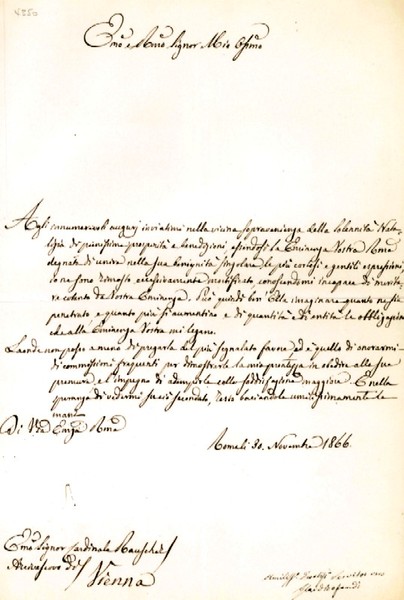 4250
Emo e Rmo Signor Mio Ossmo
Agli innumerevoli augurj inviatimi nella vicina sopravvenienza della Solennità Nata-
lizia di pienissime prosperità e benedizioni, essendosi la Eminenza Vostra Rma
degnata di unire nella sua benignità singolare le più cortesi e gentili espressioni,
io ne sono rimasto eccessivamente mortificato conoscendomi incapace di merita-
re cotanto da Vostra Eminenza. Può quindi ben Ella immaginare quanto ne sia
penetrato e quanto più si aumentino e di quantità e di entità le obbligazioni
che alla Eminenza Vostra mi legano.
Laonde non posso a meno di pregarla del più segnalato favore ed è quello di onorarmi
di commissioni frequenti per dimostrarle la mia prontezza in obedire alle sue
premure e l'impegno di adempirle colla soddisfazione maggiore. E nella
speranza di vedermi in ciò secondato, resto baciandole umilissimamente le
mani
Di Vra Emza Rma
Roma li 30. Novembre 1866.
Emo Signor Cardinale Rauscher
Arcivescovo di
Vienna
Umilissmo Servitor vero